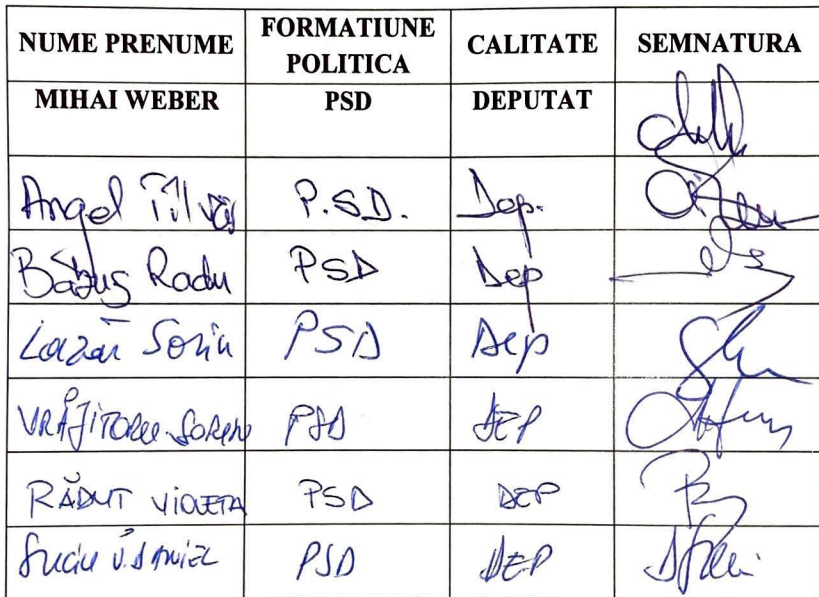 NUME PRENUME FORMATIUNE POLITICA CALITATE SEMNATURA
MIHAI WEBER PSD DEPUTAT
Angel Tîlvăr P.S.D. Dep.
Bătuș Radu PSD Dep
Lazăr Sorin PSD Dep
VRĂJITORU SORIN PSD DEP
RĂDUT VIOLETA PSD DEP
Suciu V. DANIEL PSD DEP